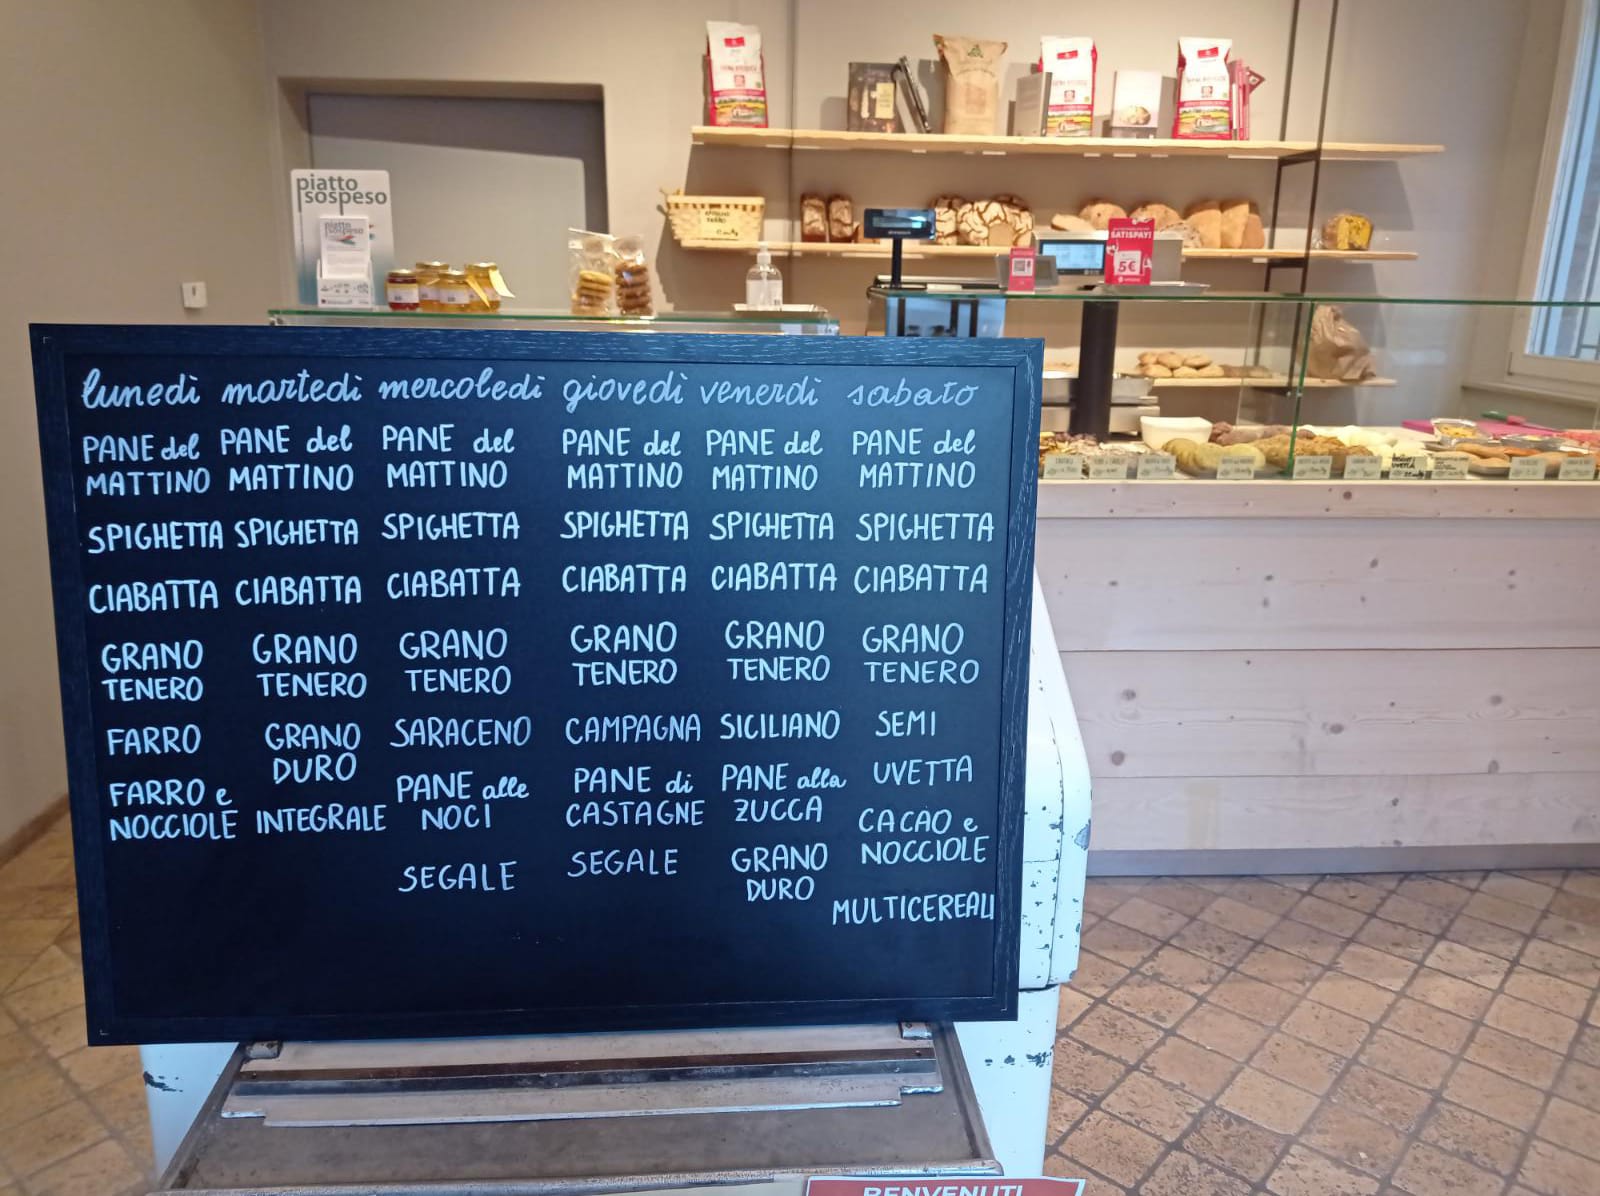 piatto
sospeso
piatto
sospeso
SATISPAY!
5€
lunedì martedì mercoledì giovedì venerdì sabato
PANE del PANE del PANE del PANE del PANE del PANE del
MATTINO MATTINO MATTINO MATTINO MATTINO MATTINO
SPIGHETTA SPIGHETTA SPIGHETTA SPIGHETTA SPIGHETTA SPIGHETTA
CIABATTA CIABATTA CIABATTA CIABATTA CIABATTA CIABATTA
GRANO GRANO GRANO GRANO GRANO GRANO
TENERO TENERO TENERO TENERO TENERO TENERO
FARRO GRANO SARACENO CAMPAGNA SICILIANO SEMI
DURO
FARRO e INTEGRALE PANE alle PANE di PANE alla UVETTA
NOCCIOLE NOCI CASTAGNE ZUCCA
SEGALE SEGALE GRANO CACAO e
DURO NOCCIOLE
MULTICEREALI
BENVENUTI